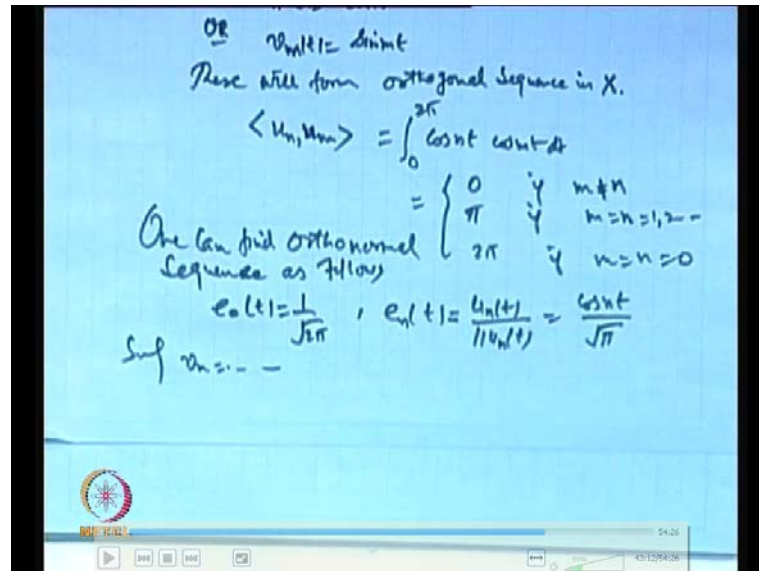 OR vm(t) = Sinmt
These will form orthogonal Sequence in X.
<un, um> = ∫₀^2π Cosnt cosmt dt
= { 0 if m≠n
π if m=n=1,2--
2π if m=n=0
One Can find orthonormal
Sequence as follows
e₀(t) = 1/√2π , en(t) = un(t)/||un(t) = Cosnt/√π
vn = --- 
54:26
43:12/54:26